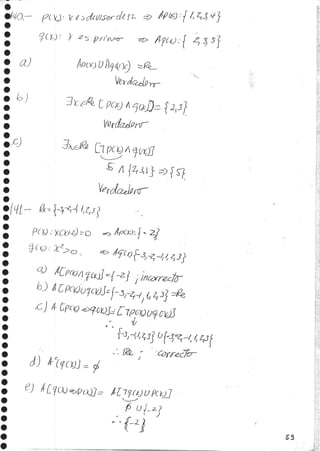 40.- p(x): x es divisor de 12 => Ap(x): {1,2,3,4}
q(x): x es primo => Aq(x): {2,3,5}
a) Ap(x) U Aq(x) = Re
Verdadero
b) ∃x∈Re [p(x) ∧ q(x)] = {2,3}
Verdadero
c) ∃x∈Re [¬p(x) ∧ q(x)]
5 ∧ {2,3,5} => {5}
Verdadero
41.- Re = {-3,-2,-1,1,2,3}
p(x): x(x+2)=0 => Ap(x): {-2}
q(x): x²>0. => Aq(x) {-3,-2,-1,1,2,3}
a) A[p(x) ∧ q(x)] = {-2} ; incorrecto
b) A[p(x) U q(x)] = {-3,-2,-1,1,2,3} = Re
c) A[p(x) => q(x)] = [¬p(x) U q(x)]
{-3,-1,1,2,3} U {-3,-2,-1,1,2,3}
∴ Re ; correcto
d) A'(q(x)) = ∅
e) A[q(x) => p(x)] = A[¬q(x) U p(x)]
∅ U {-2}
∴ {-2}
53